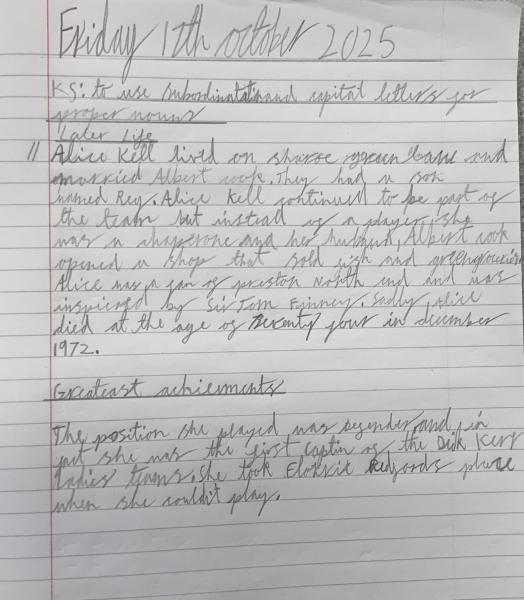 Friday 17th october 2025
KS: to use subordination and capital letters for
proper nouns
Later Life
Alice Kell lived on and
married Albert cook. They had a son
named Reg. Alice Kell continued to be part of
the team but instead of a player, she
was a chaperone and her husband, Albert cook
opened a shop that sold fish and
Alice was a fan of preston North end and was
inspiered by Sir Tom Finney. Sadly, Alice
died at the age of seventy four in december
1972.
Greateast achievments
The position she played was defender and in
she was the first captin of the Dick Kerr
Ladies team. She took Redfords place
when she couldn't play.